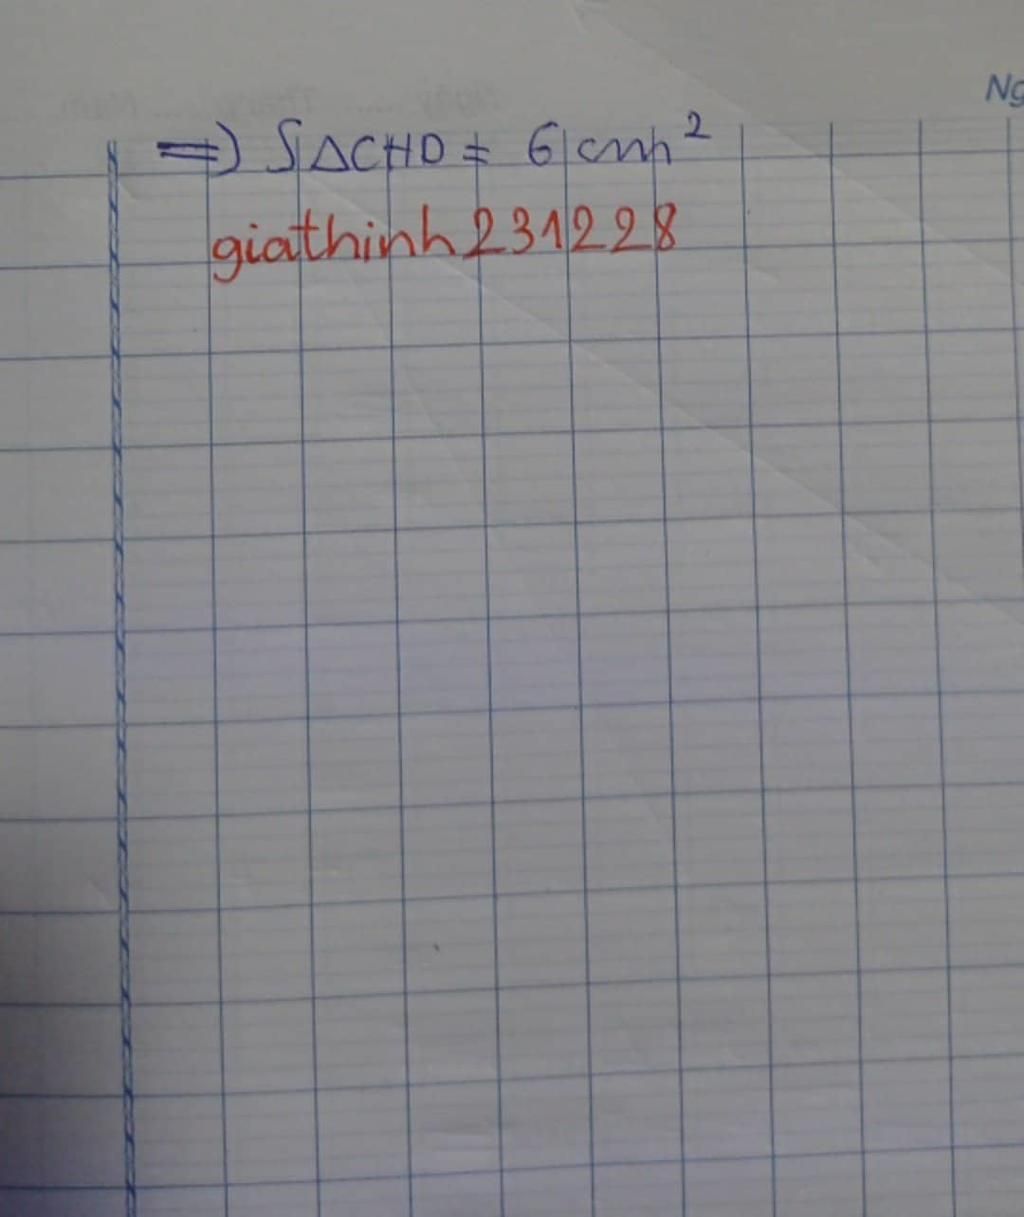 Ng
=> SΔCHD = 6 cm²
giathinh231228